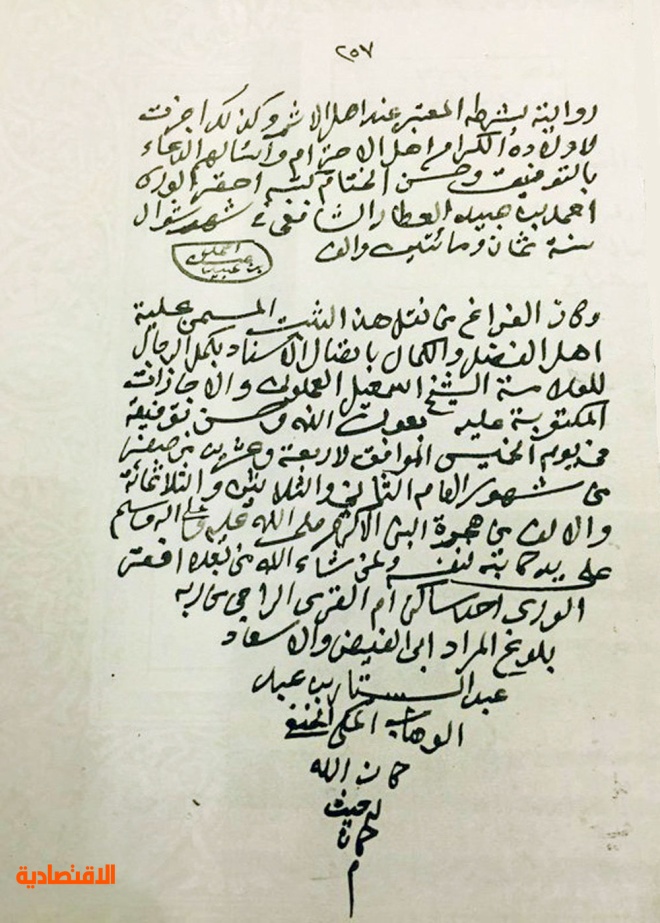 ٢٥٧
روايته بشرطه المعتبر عند اهل الاثر وكذلك اجزت
لاولاده الكرام اهل الاحترام وأسألهم الدعاء
بالتوفيق وحسن الختام كتبه احقر الورى
احمد بن عبيد العطار الشافعي في شهر شوال
سنة ثمان ومائتين والف
احمد بن عبيد
وكان الفراغ من نقل هذا الثبت المسمى حلية
اهل الفضل والكمال باتصال الاسناد بكمل الرجال
للعلامة الشيخ اسمعيل العجلوني والاجازات
المكتوبة عليه بعون الله وحسن توفيقه
في يوم الخميس الموافق لاربعة وعشرين من صفر
من شهور العام الثاني والثلاثين والثلاثمائة
والالف من هجرة النبي الاكرم صلى الله عليه وعلى اله وسلم
على يد كاتبه لنفسه ولمن شاء الله من بعده افقر
الورى احد ساكني أم القرى الراجي من ربه
بلوغ المراد ابي الفيض والاسعاد
عبد الستار بن عبد
الوهاب المكي الحنفي
كان الله
له حيث
كان
م
الاقتصادية